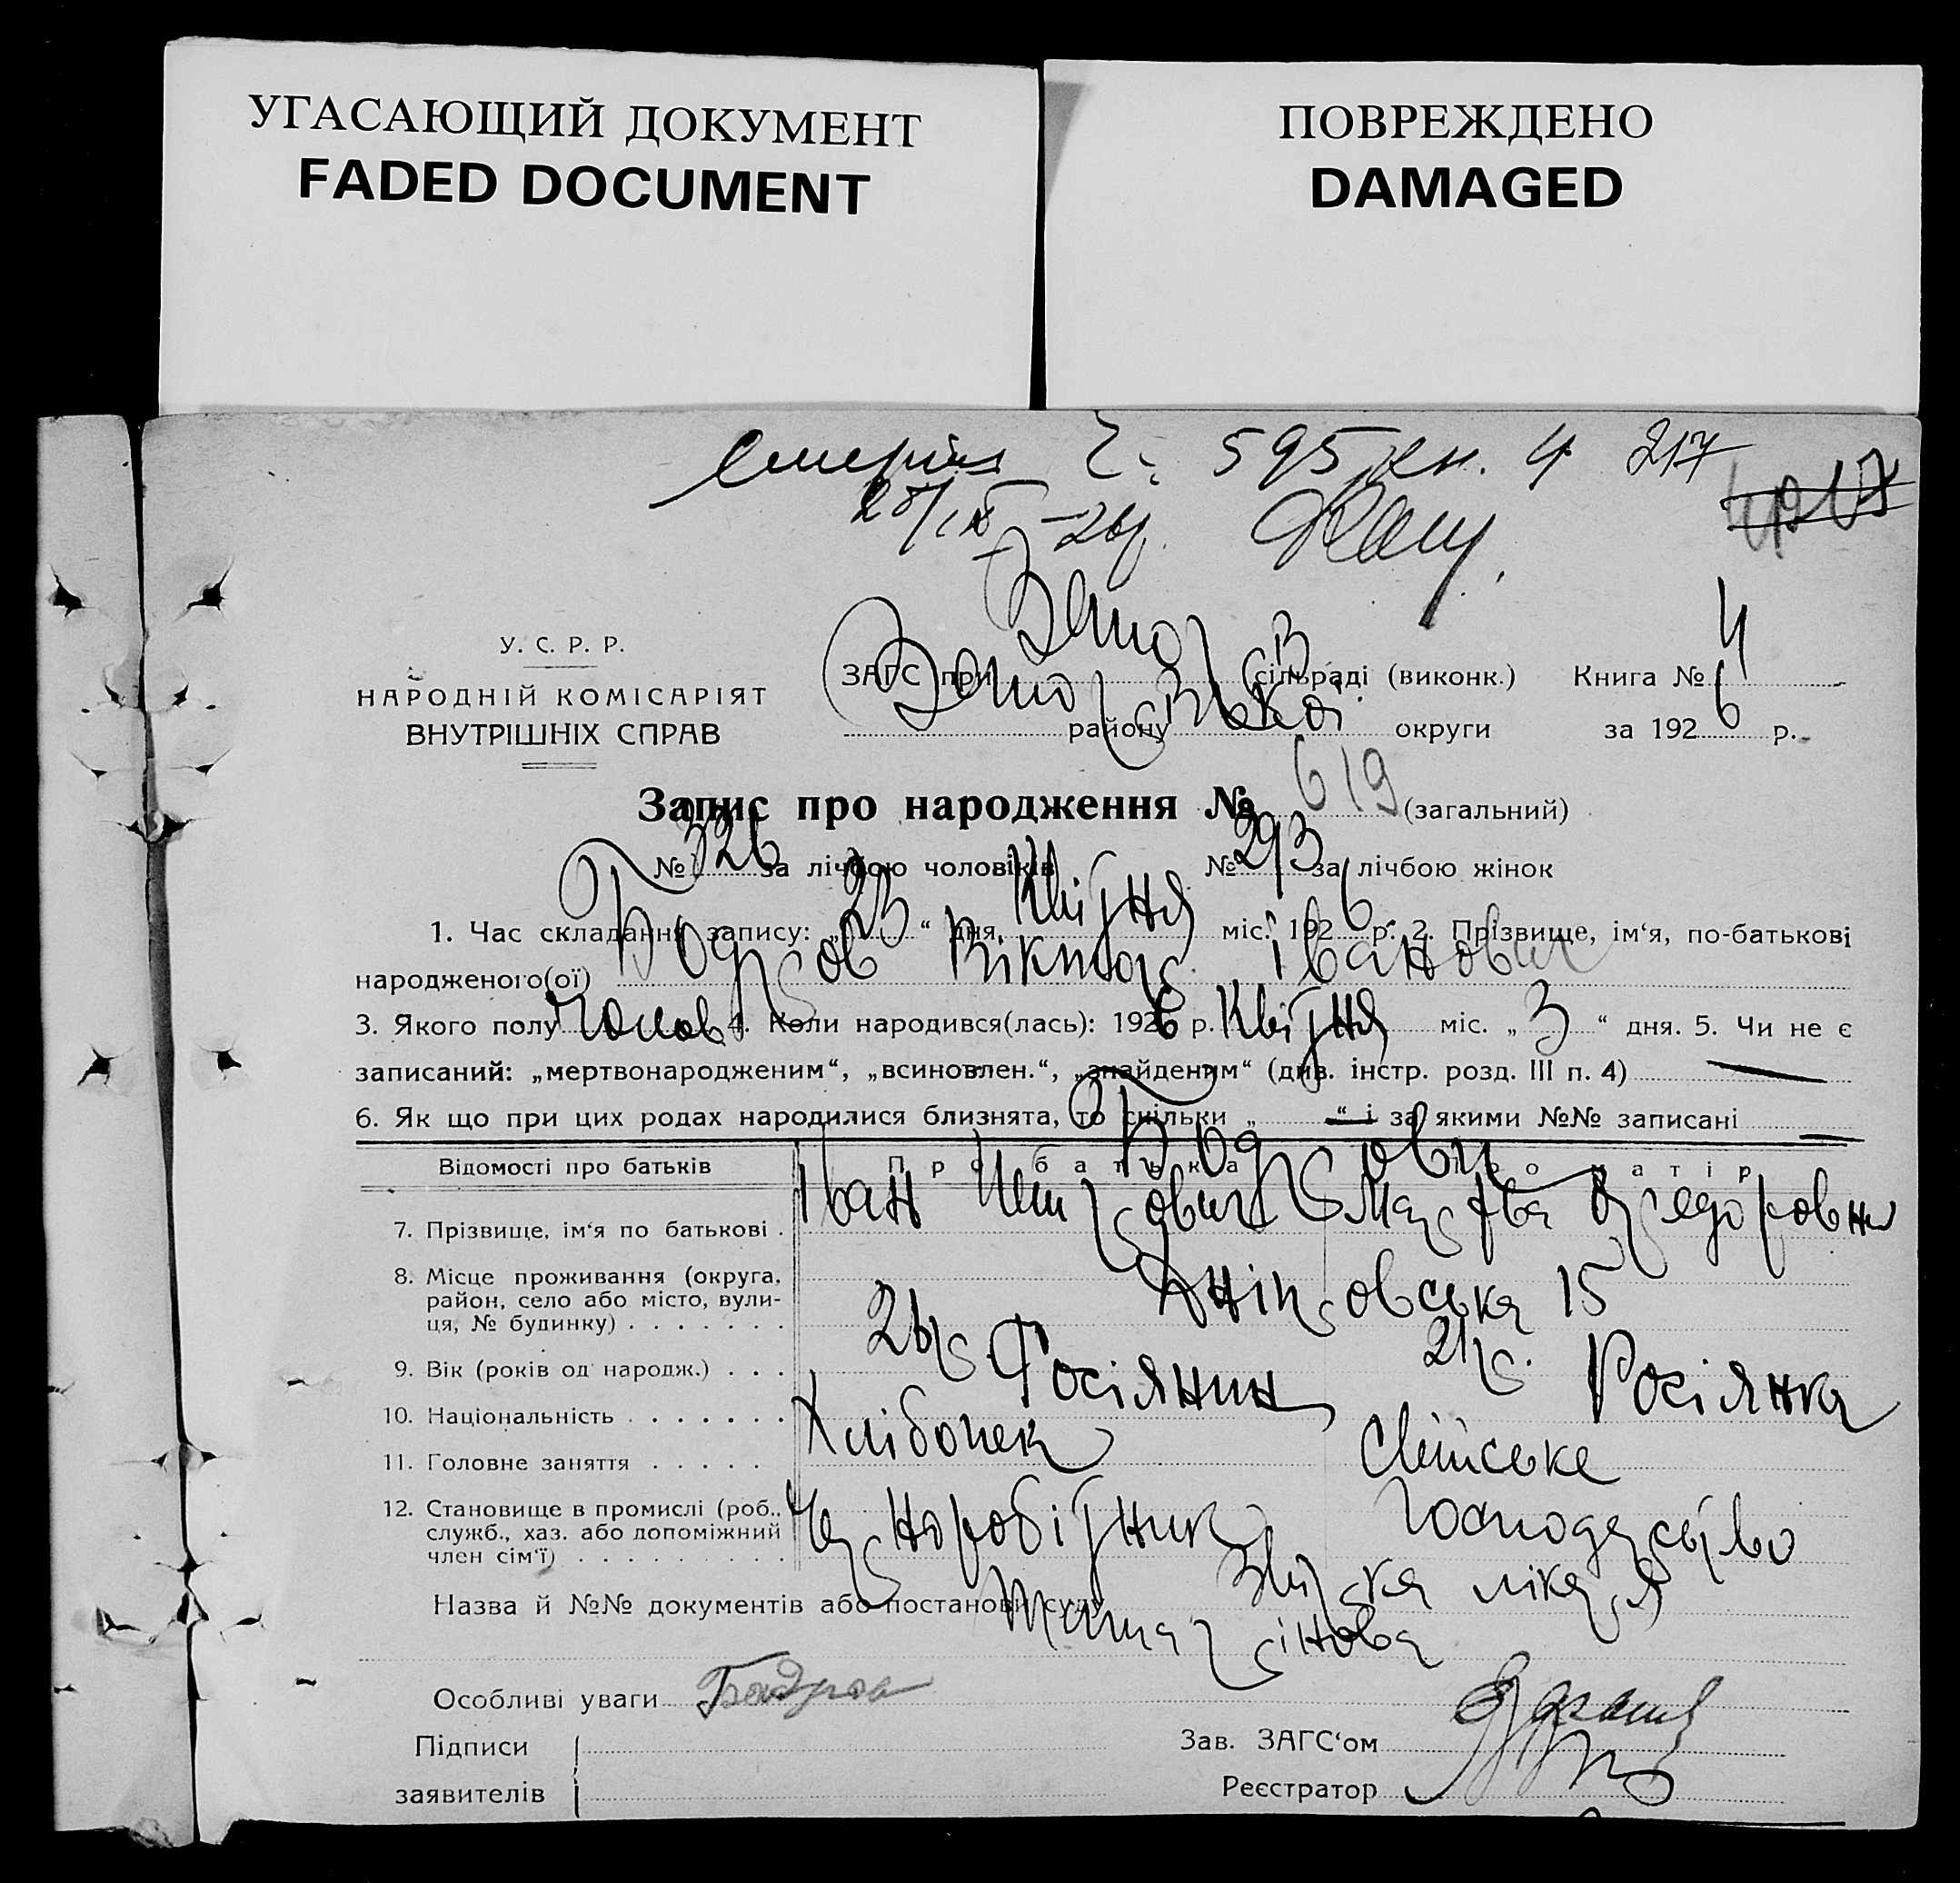 УГАСАЮЩИЙ ДОКУМЕНТ
FADED DOCUMENT
ПОВРЕЖДЕНО
DAMAGED
Ч. 595 кн. 4 217
28/IX-26р.
У. С. Р. Р.
НАРОДНІЙ КОМІСАРІЯТ
ВНУТРІШНІХ СПРАВ
ЗАГС при сільраді (виконк.) Книга № 4
району округи за 1926 р.
Запис про народження № 619 (загальний)
№ 326 за лічбою чоловіків № 293 за лічбою жінок
1. Час складання запису: „23“ дня Квітня міс. 1926 р. 2. Прізвище, ім'я, по-батькові
народженого(ої) Бодров Віктор Іванович
3. Якого полу чолов 4. Коли народився(лась): 1926 р. Квітня міс. „3“ дня. 5. Чи не є
записаний: „мертвонародженим“, „всиновлен.“, „знайденим“ (див. інстр. розд. III п. 4) —
6. Як що при цих родах народилися близнята, то скільки „ — “ і за якими №№ записані —
Відомості про батьків Про батька Про матір
Бодрови
7. Прізвище, ім'я по батькові . Іван Петрович Марфа Федоровна
8. Місце проживання (округа,
район, село або місто, вули-
ця, № будинку) . . . . . . . Дніпровська 15
9. Вік (років од народж.) . . . 26р. 21р.
10. Національність . . . . . . . Росіянин Росіянка
11. Головне заняття . . . . . Хлібопек Свійське
12. Становище в промислі (роб.,
служб., хаз. або допоміжний
член сім'ї) . . . . . . . . . Чорноробітник господарство
Назва й №№ документів або постанови суду лікаря
Особливі уваги Бодров
Підписи
заявителів
Зав. ЗАГС'ом
Реєстратор